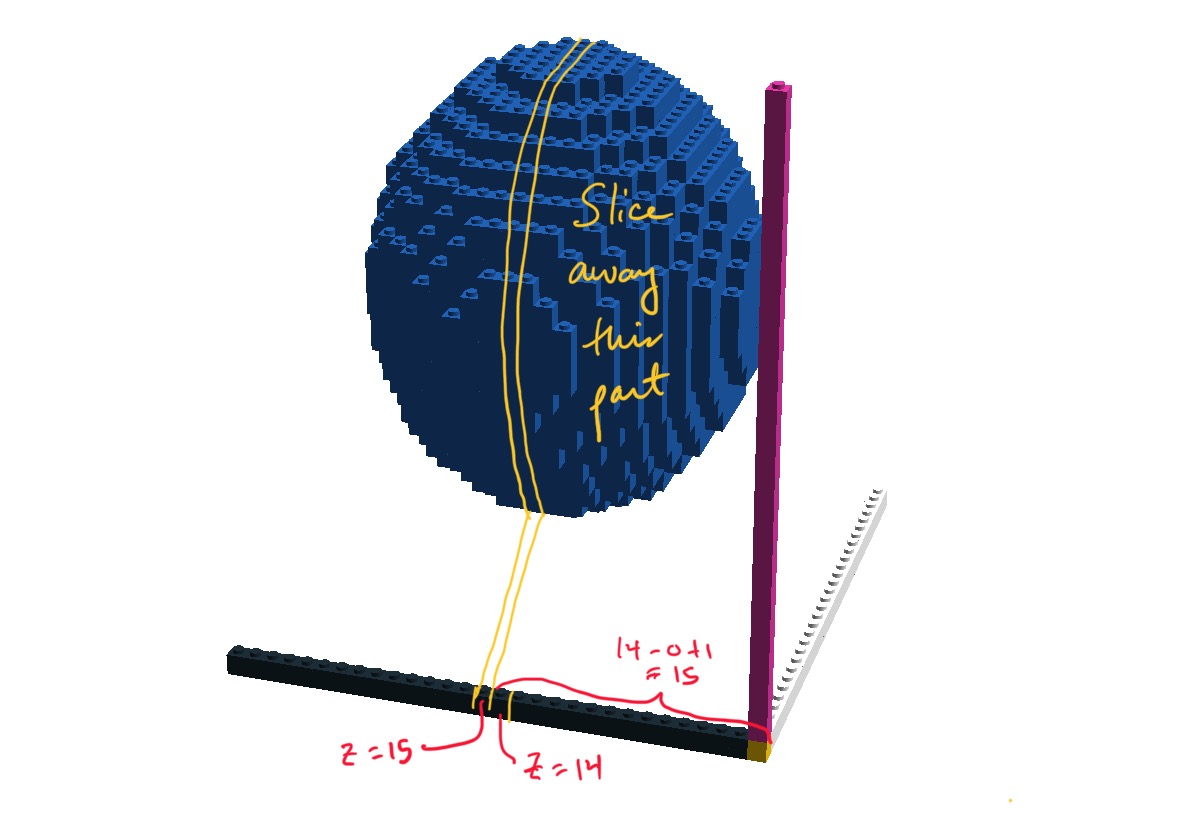 Slice
away
this
part
14-0+1
= 15
z=15
z=14